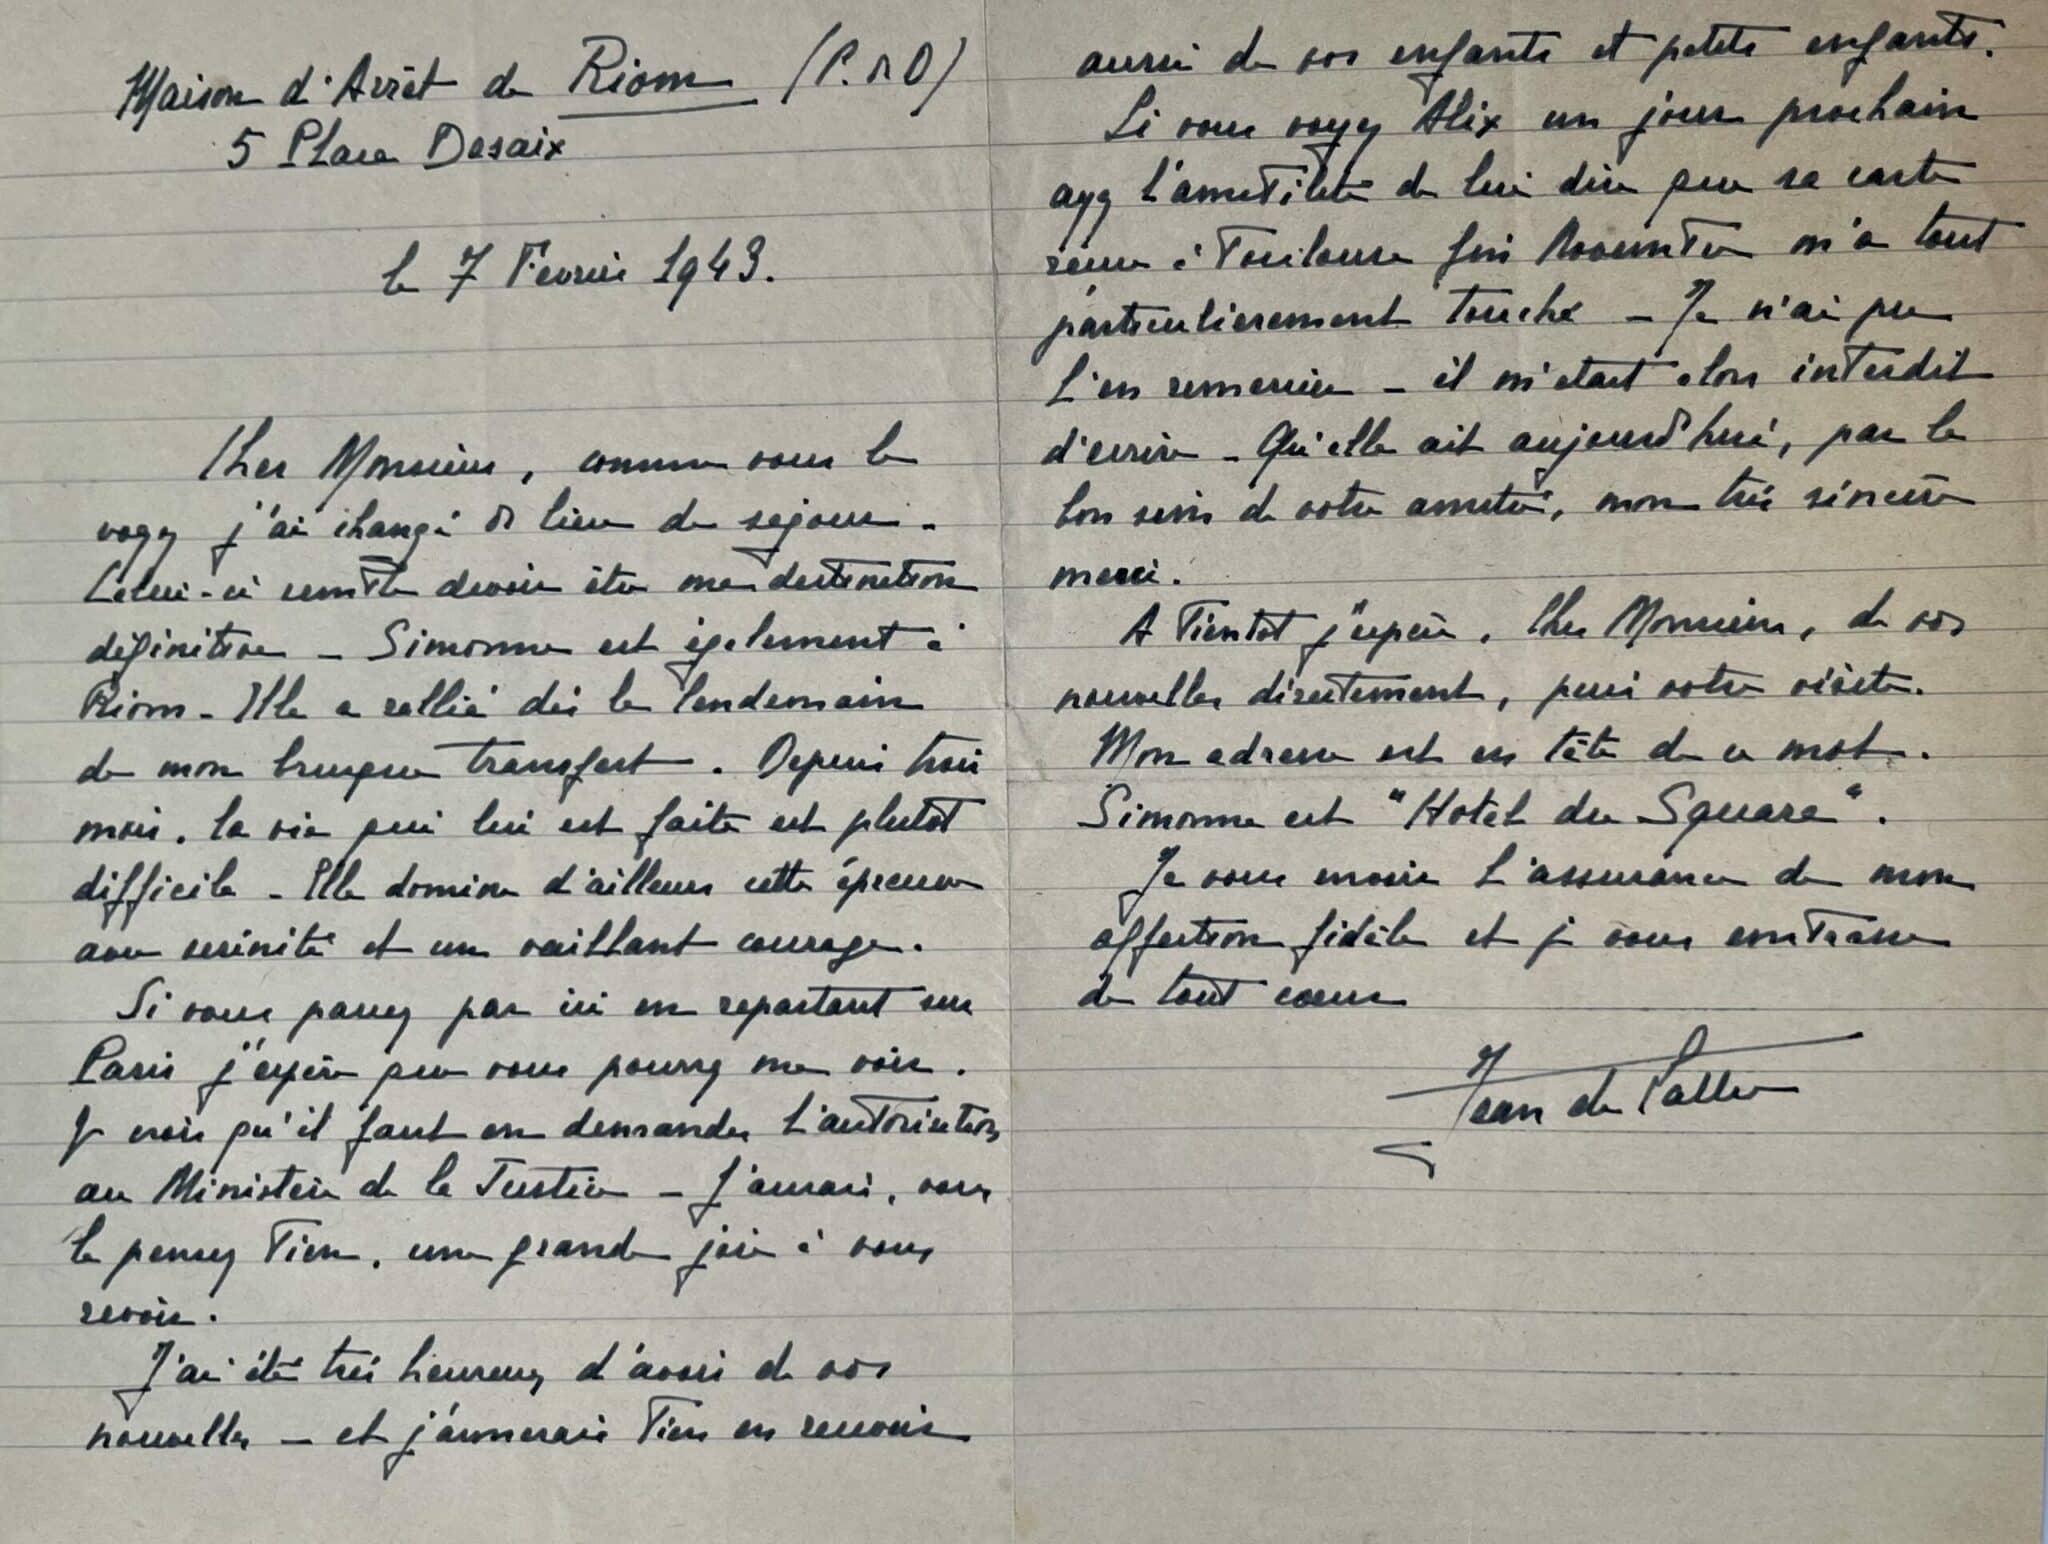 Maison d'Arrêt de Riom (P. de D)
5 Place Desaix
le 7 Fevrier 1943.
Cher Monsieur, comme vous le
voyez j'ai changé de lieu de sejour -
Celui-ci semble devoir être ma destination
définitive - Simonne est également à
Riom - Elle a rallié dès le lendemain
de mon brusque transfert. Depuis trois
mois, la vie qui lui est faite est plutôt
difficile - Elle domine d'ailleurs cette épreuve
avec serénité et un vaillant courage.
Si vous passez par ici en repartant sur
Paris j'espère que vous pourrez me voir.
Je crois qu'il faut en demander l'autorisation
au Ministère de la Justice - J'aurai, vous
le pensez bien, une grande joie à vous
revoir.
J'ai été très heureux d'avoir de vos
nouvelles - et j'aimerais bien en recevoir
aussi de vos enfants et petits enfants.
Si vous voyez Alix un jour prochain
ayez l'amabilité de lui dire que sa carte
reçue à Toulouse fin Novembre m'a tout
particulierement touché - Je n'ai pu
l'en remercier - il m'etait alors interdit
d'ecrire - Qu'elle ait aujourd'hui, par le
bon soin de votre amitié, mon très sincère
merci.
A bientot j'espère, Cher Monsieur, de vos
nouvelles directement, puis votre visite.
Mon adresse est en tête de ce mot.
Simonne est "Hotel du Square".
Je vous envoie l'assurance de mon
affection fidèle et je vous embrasse
de tout cœur
Jean de